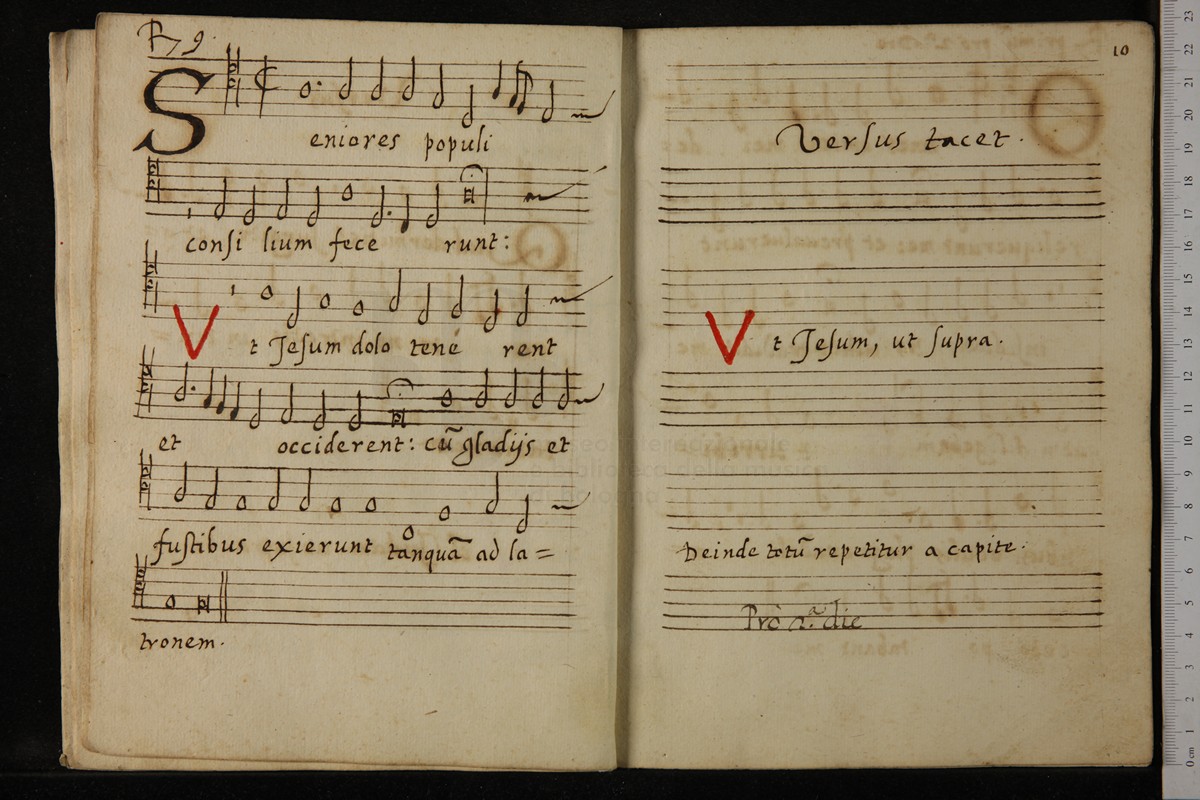 R 9.
Seniores populi
consi lium fece runt:
Vt Jesum dolo tene rent
et occiderent: cũ gladijs et
fustibus exierunt tanquã ad la=
tronem.
10
Versus tacet.
Vt Jesum, ut supra.
Deinde totũ repetitur a capite.
Pro 2.a die